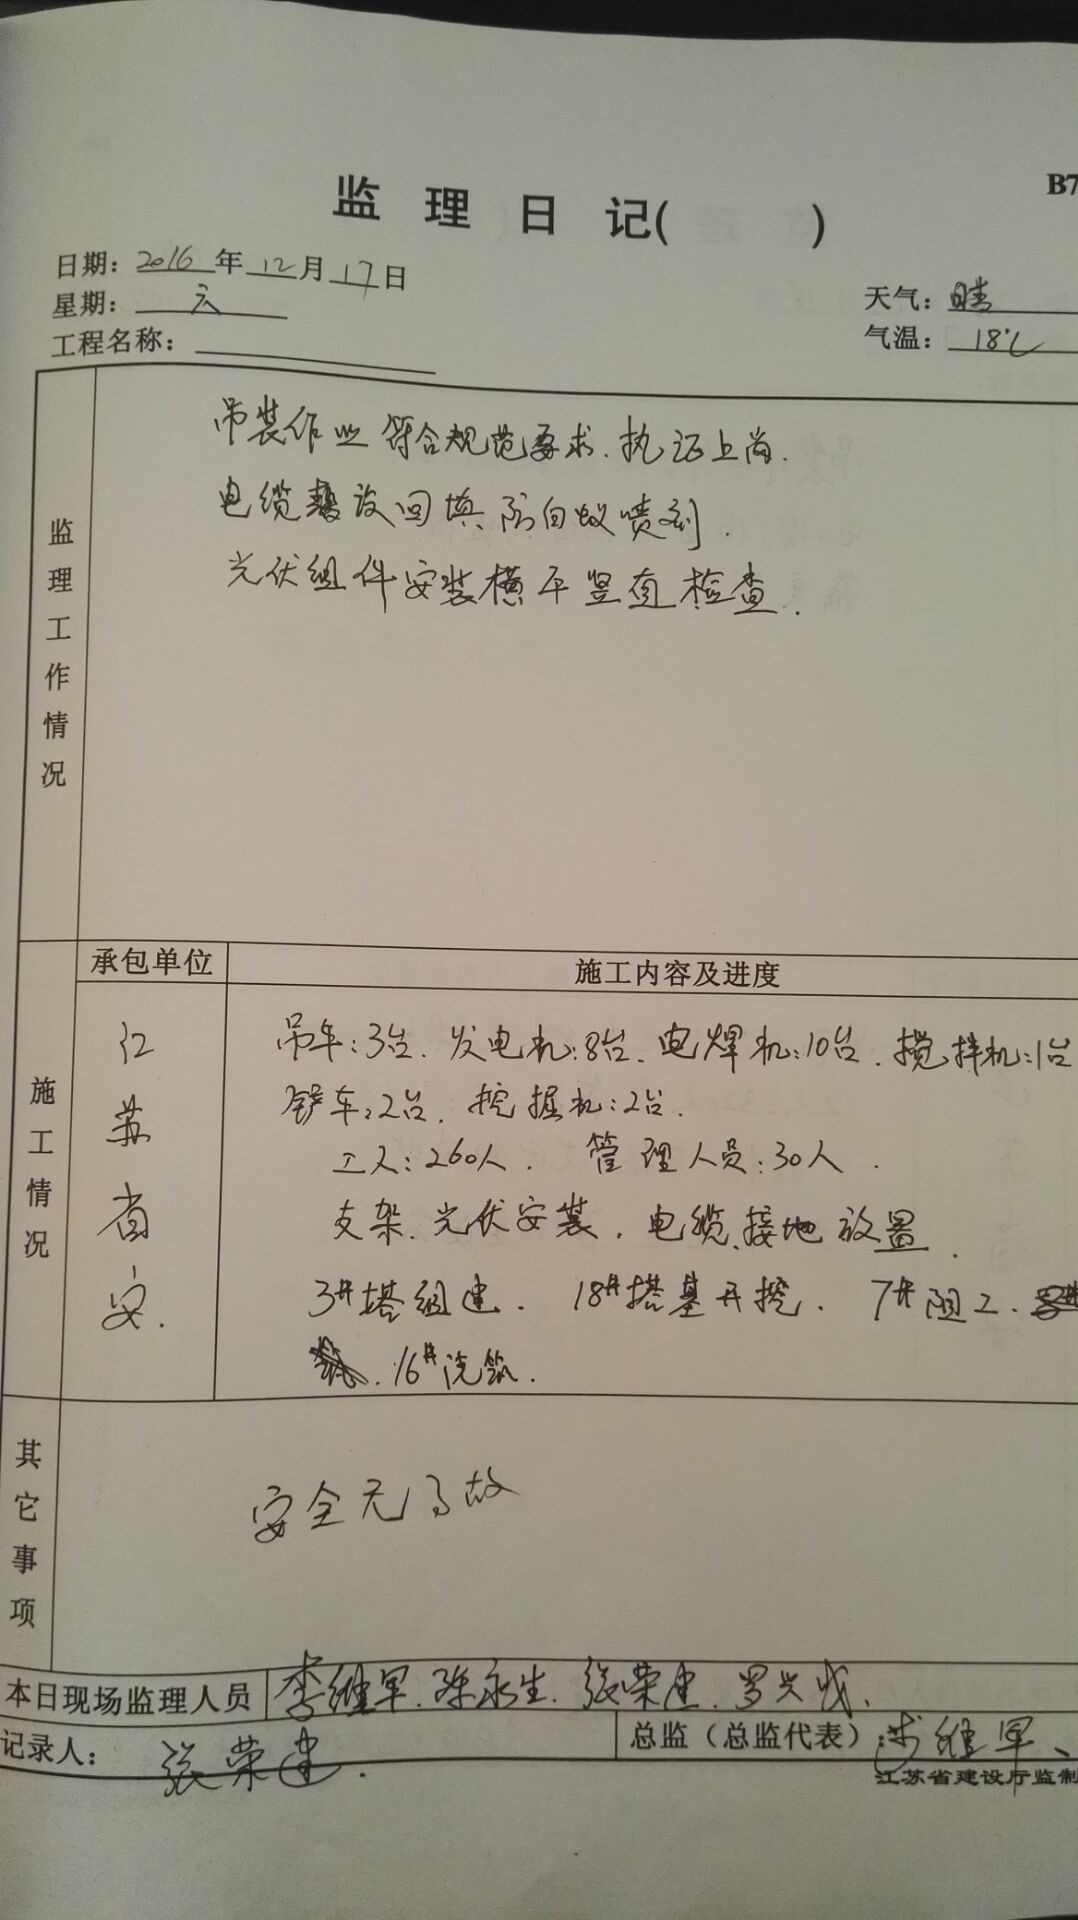 B7
监 理 日 记( )
日期：2016年12月17日
星期：六
天气：晴
工程名称：
气温：18℃
监理工作情况
吊装作业符合规范要求.执证上岗.
电缆敷设回填.防白蚁喷剂.
光伏组件安装横平竖直检查.
施工情况
承包单位
施工内容及进度
江苏省安.
吊车:3台.发电机:8台.电焊机:10台.搅拌机:1台
铲车:2台.挖掘机:2台.
工人:260人. 管理人员:30人.
支架.光伏安装.电缆.接地放置.
3#塔组建. 18#塔基开挖. 7#阻工.
16#浇筑.
其它事项
安全无事故
本日现场监理人员
李继军.陈永生.张荣建.罗兴成.
记录人：张荣建.
总监（总监代表）：李继军、
江苏省建设厅监制